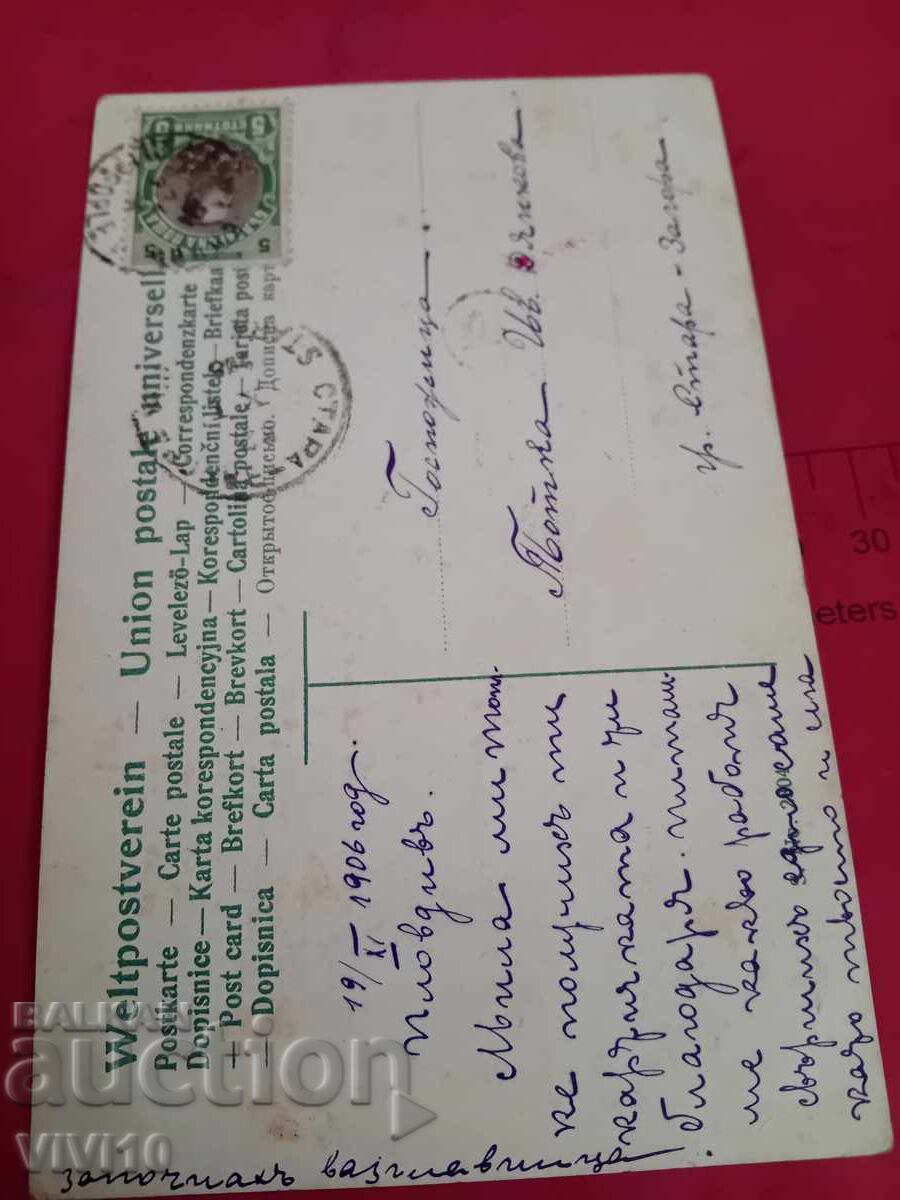 Weltpostverein — Union postale universelle
Postkarte — Carte postale — Levelező-Lap — Correspondenzkarte
Dopisnice — Karta korespondencyjna — Korespondenční listek — Briefkaart
Post card — Brefkort — Brevkort — Cartolina postale — Tarjeta postal
Dopisnica — Carta postala — Открытое письмо. Дописна карта
5 СТОТИНКИ 5
5 5
СТАРА
Госпожица
Тотка Ив.
гр. Стара - Загора.
19/XI 1906 год.
Пловдивъ.
Мила ми Тот-
ке получихъ ти
картичката и ти
благодаря. питаш
ме какво работя
свършихъ
като твоето и
започнахъ възглавница.
30
eters
BALKAN
auction
VIVI10